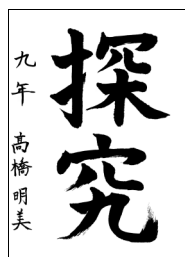 探究
九年 高橋明美